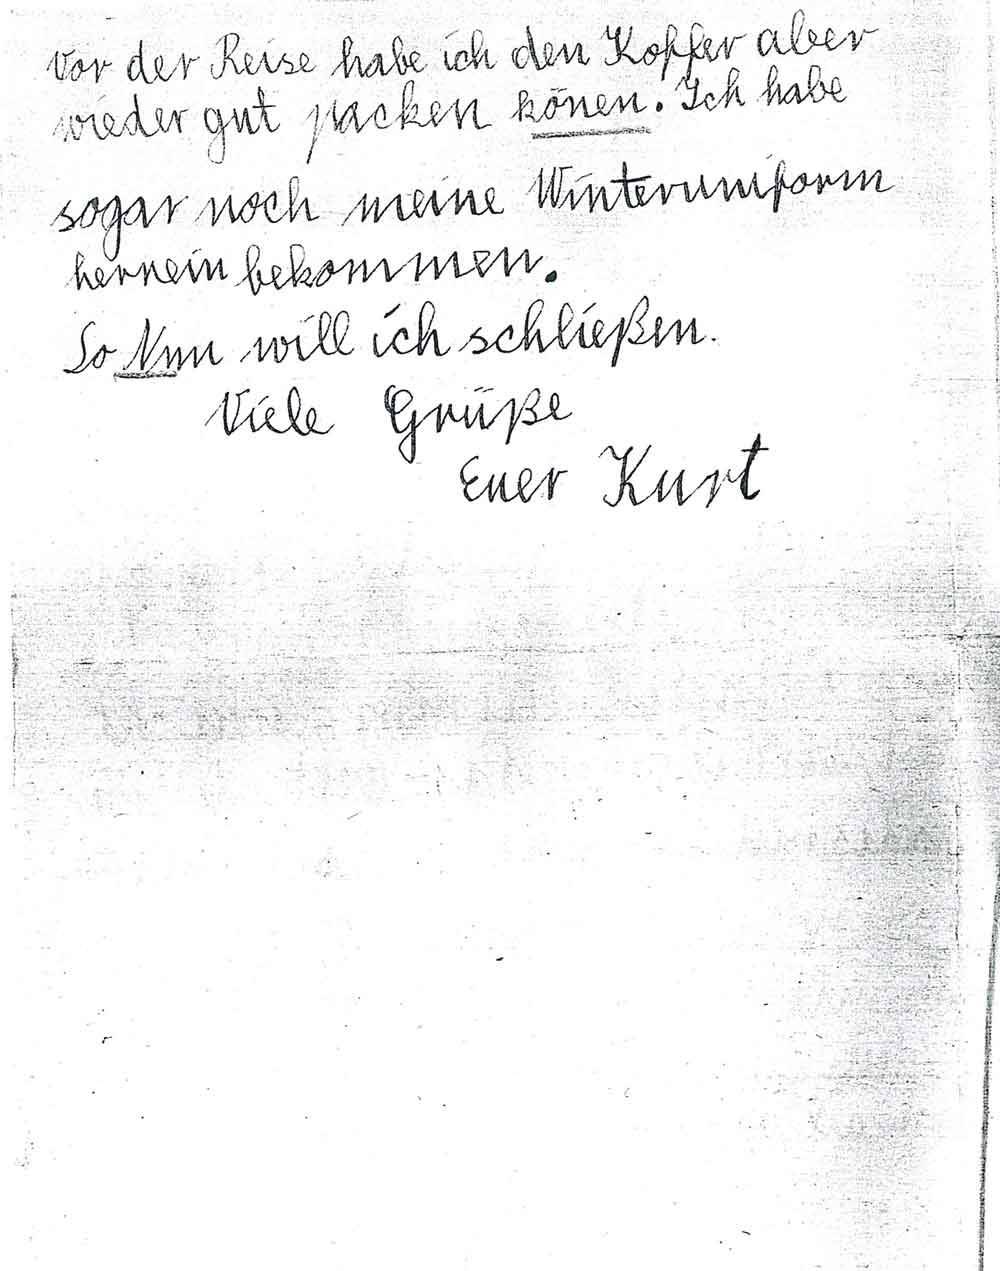 Vor der Reise habe ich den Koffer aber
wieder gut packen könen. Ich habe
sogar noch meine Winteruniform
hernein bekommen.
So Nun will ich schließen.
Viele Grüße
Euer Kurt